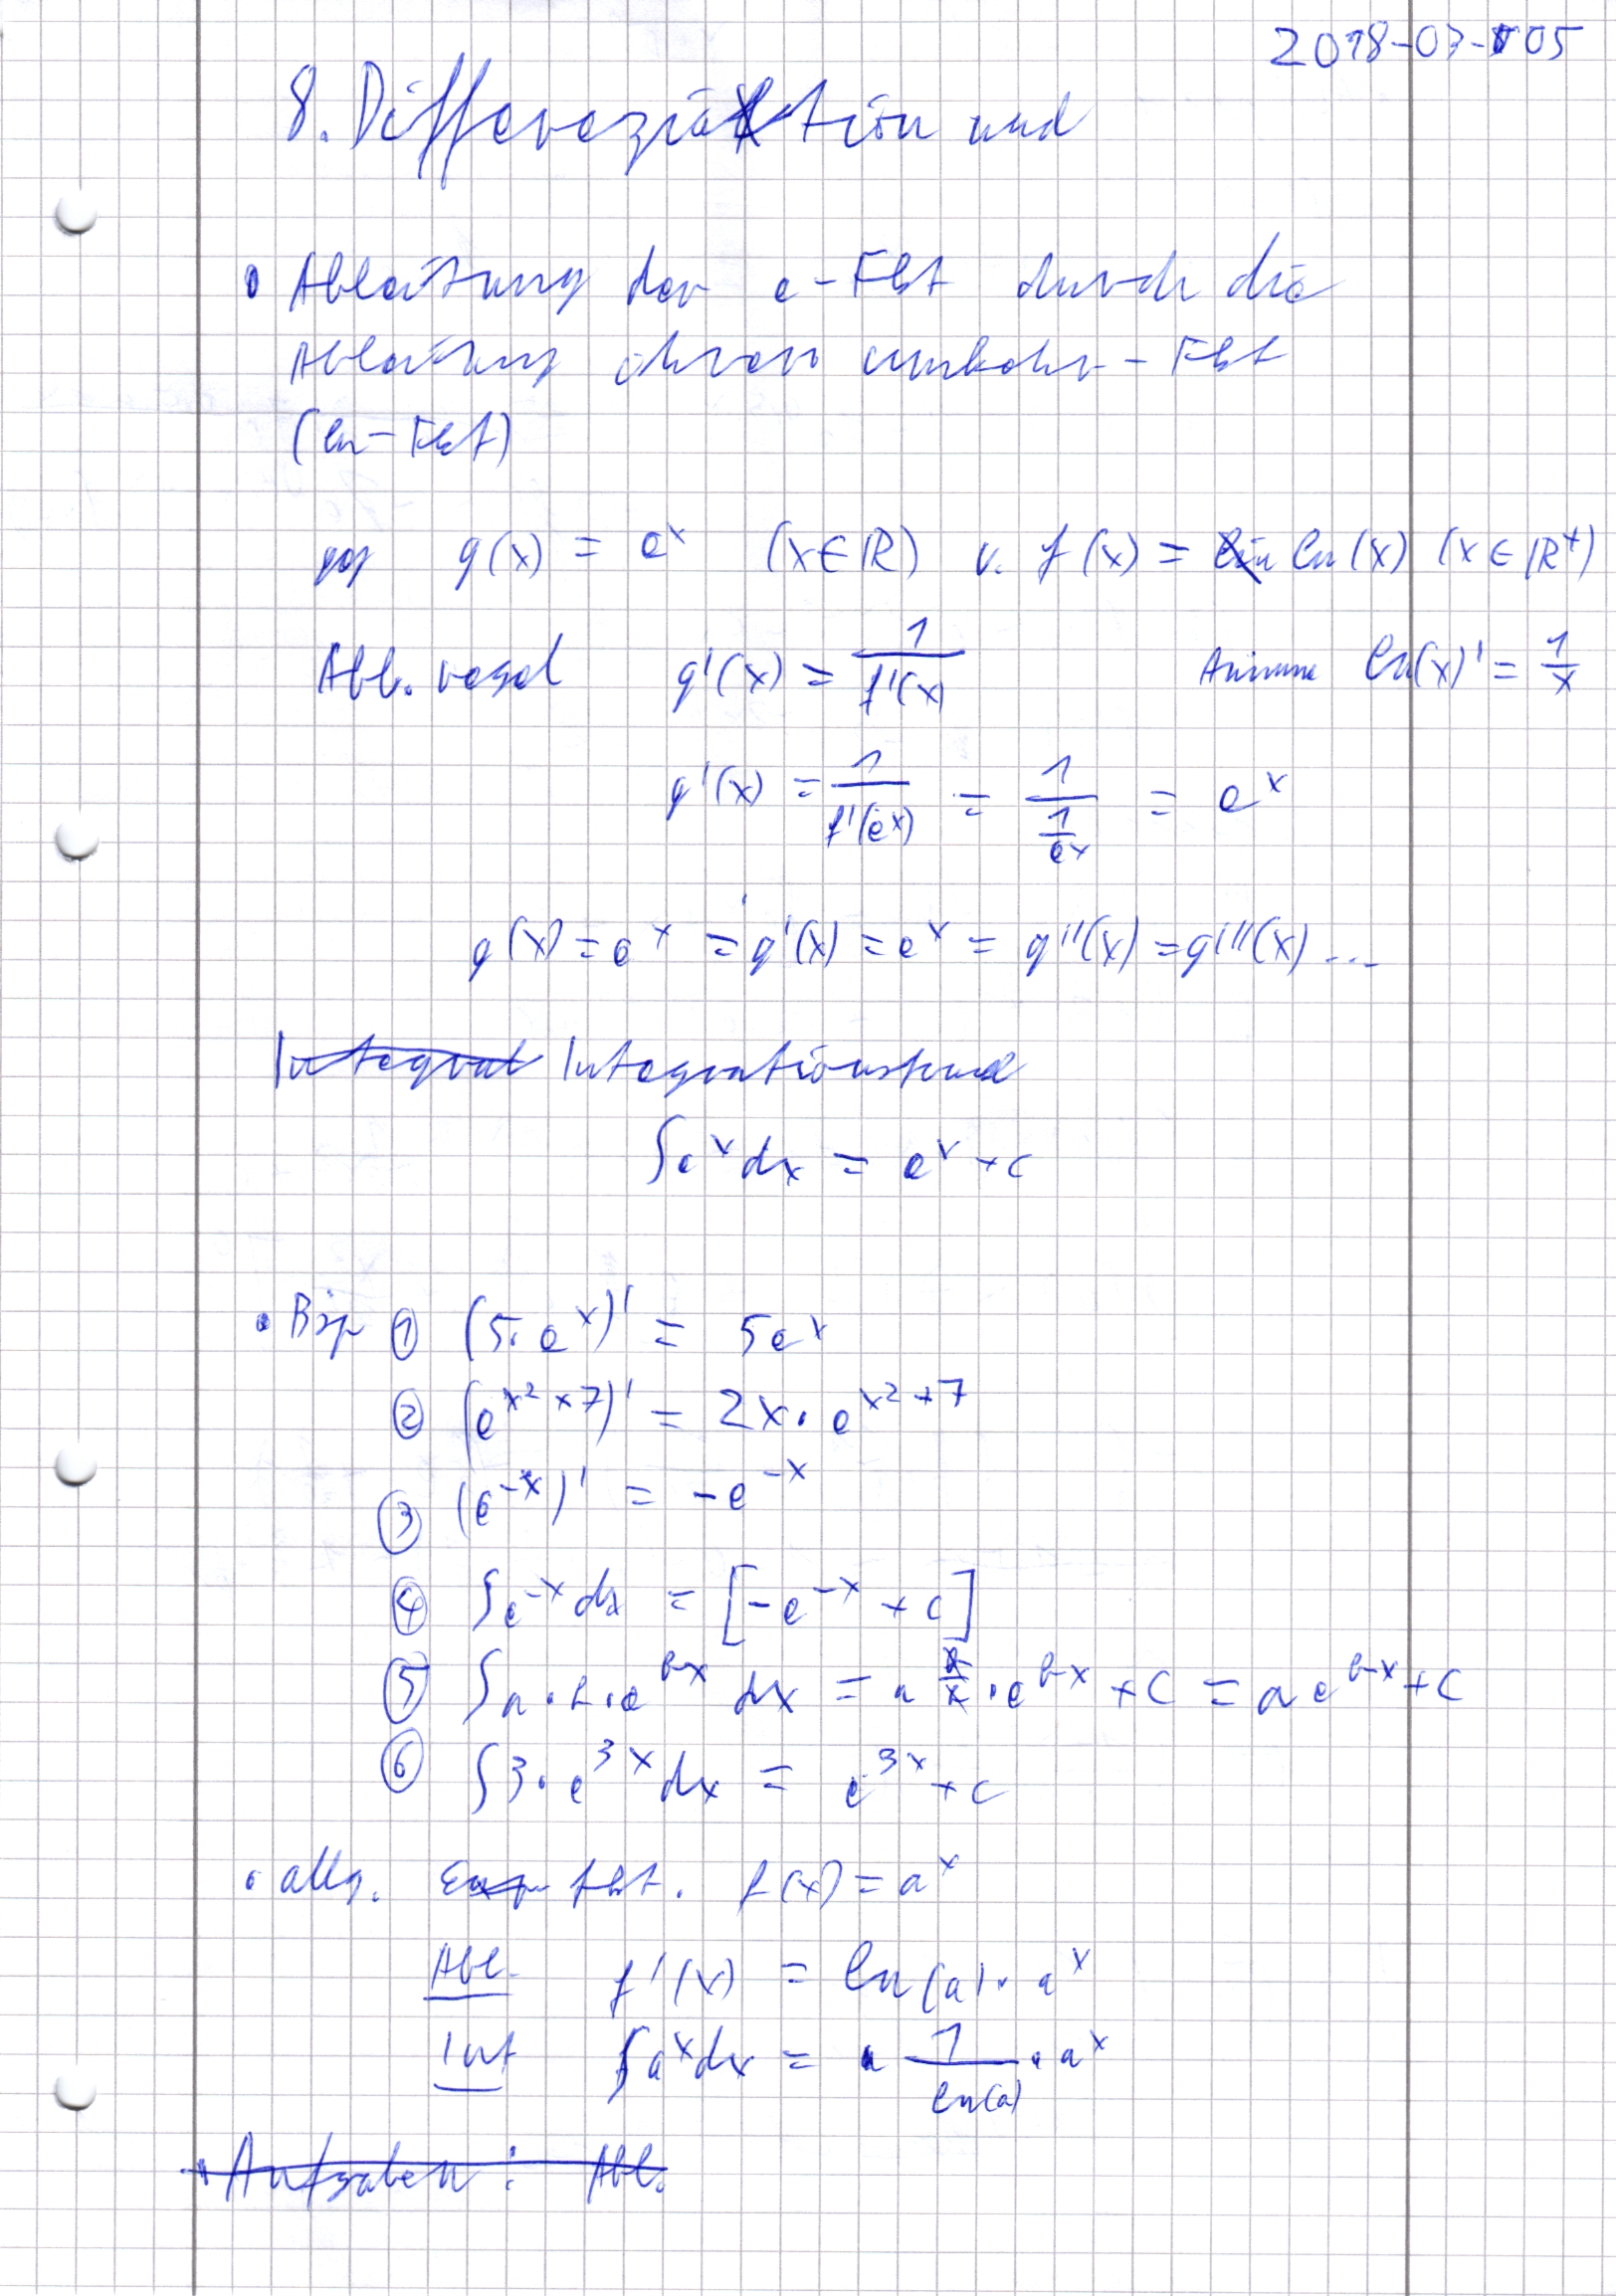 2018-03-05
8. Differeziation und
• Ableitung der e-Fkt durch die
Ableitung ihrer umkehr-Fkt
(ln-Fkt)
geg g(x) = e^x (x ∈ ℝ) u. f(x) = ln(x) (x ∈ ℝ⁺)
Abl. regel g'(x) = 1/f'(x) ln(x)' = 1/x
g'(x) = 1/f'(e^x) = 1/(1/e^x) = e^x
g(x) = e^x = g'(x) = e^x = g''(x) = g'''(x) ...
Integral Integrations
∫e^x dx = e^x + c
• Bsp ① (5·e^x)' = 5e^x
② (e^(x²+7))' = 2x·e^(x²+7)
③ (e^(-x))' = -e^(-x)
④ ∫e^(-x) dx = [-e^(-x) + c]
⑤ ∫a·b·e^(b·x) dx = a b/b · e^(b·x) + C = a e^(b·x) + C
⑥ ∫3·e^(3x) dx = e^(3x) + c
• allg. Exp fkt. f(x) = a^x
Abl. f'(x) = ln(a)·a^x
Int ∫a^x dx = 1/ln(a) · a^x
• Aufgaben: Abl.